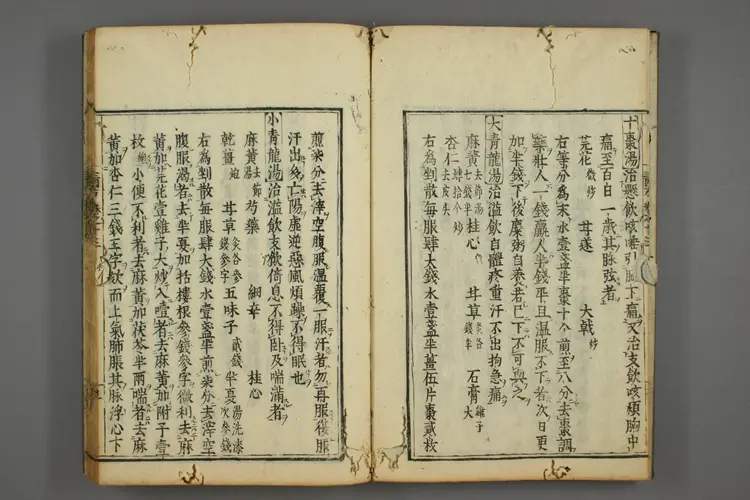 十棗湯治懸飲咳唾引脇下痛又治支飲咳煩胸中
痛至百日一歲其脉弦者
芫花微炒 甘遂 大戟炒
右等分爲末水壹盞半棗十个煎至八分去棗調
藥壯人一錢羸人半錢平旦溫服不下者次日更
加半錢下後糜粥自養若已下不可與之
大青龍湯治溢飲自體疼重汗不出拘急痛
麻黃去節湯七錢半 桂心 甘草炙各錢半 石膏雞子大
杏仁肆拾个炒去皮尖
右爲剉散每服肆大錢水壹盞半薑伍片棗貳枚
煎柒分去滓空腹服溫覆一服汗者勿再服復服
汗出多亡陽虛逆惡風煩躁不得眠也
小青龍湯治溢飲支飲倚息不得臥及喘滿者
麻黃湯去節 芍藥 細辛 桂心
乾薑炮 甘草炙各參錢參字 五味子貳錢 半夏湯洗柒次參錢
右爲剉散每服肆大錢水壹盞半煎柒分去滓空
腹服渴者去半夏加括樓根參錢參字微利去麻
黃加芫花壹雞子大炒入壹者去麻黃加附子壹
枚炮小便不利者去麻黃加茯苓半兩喘者去麻
黃加杏仁三錢王字欬而上氣肺脹其脉浮心下